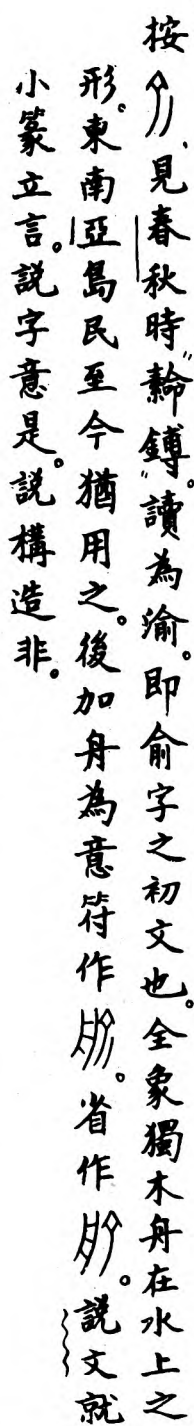 按、見春秋時"𦅫鎛"。讀為渝。即俞字之初文也。全象獨木舟在水上之
形。東南亞島民至今猶用之。後加舟為意符作。省作。說文就
小篆立言。說字意是。說構造非。